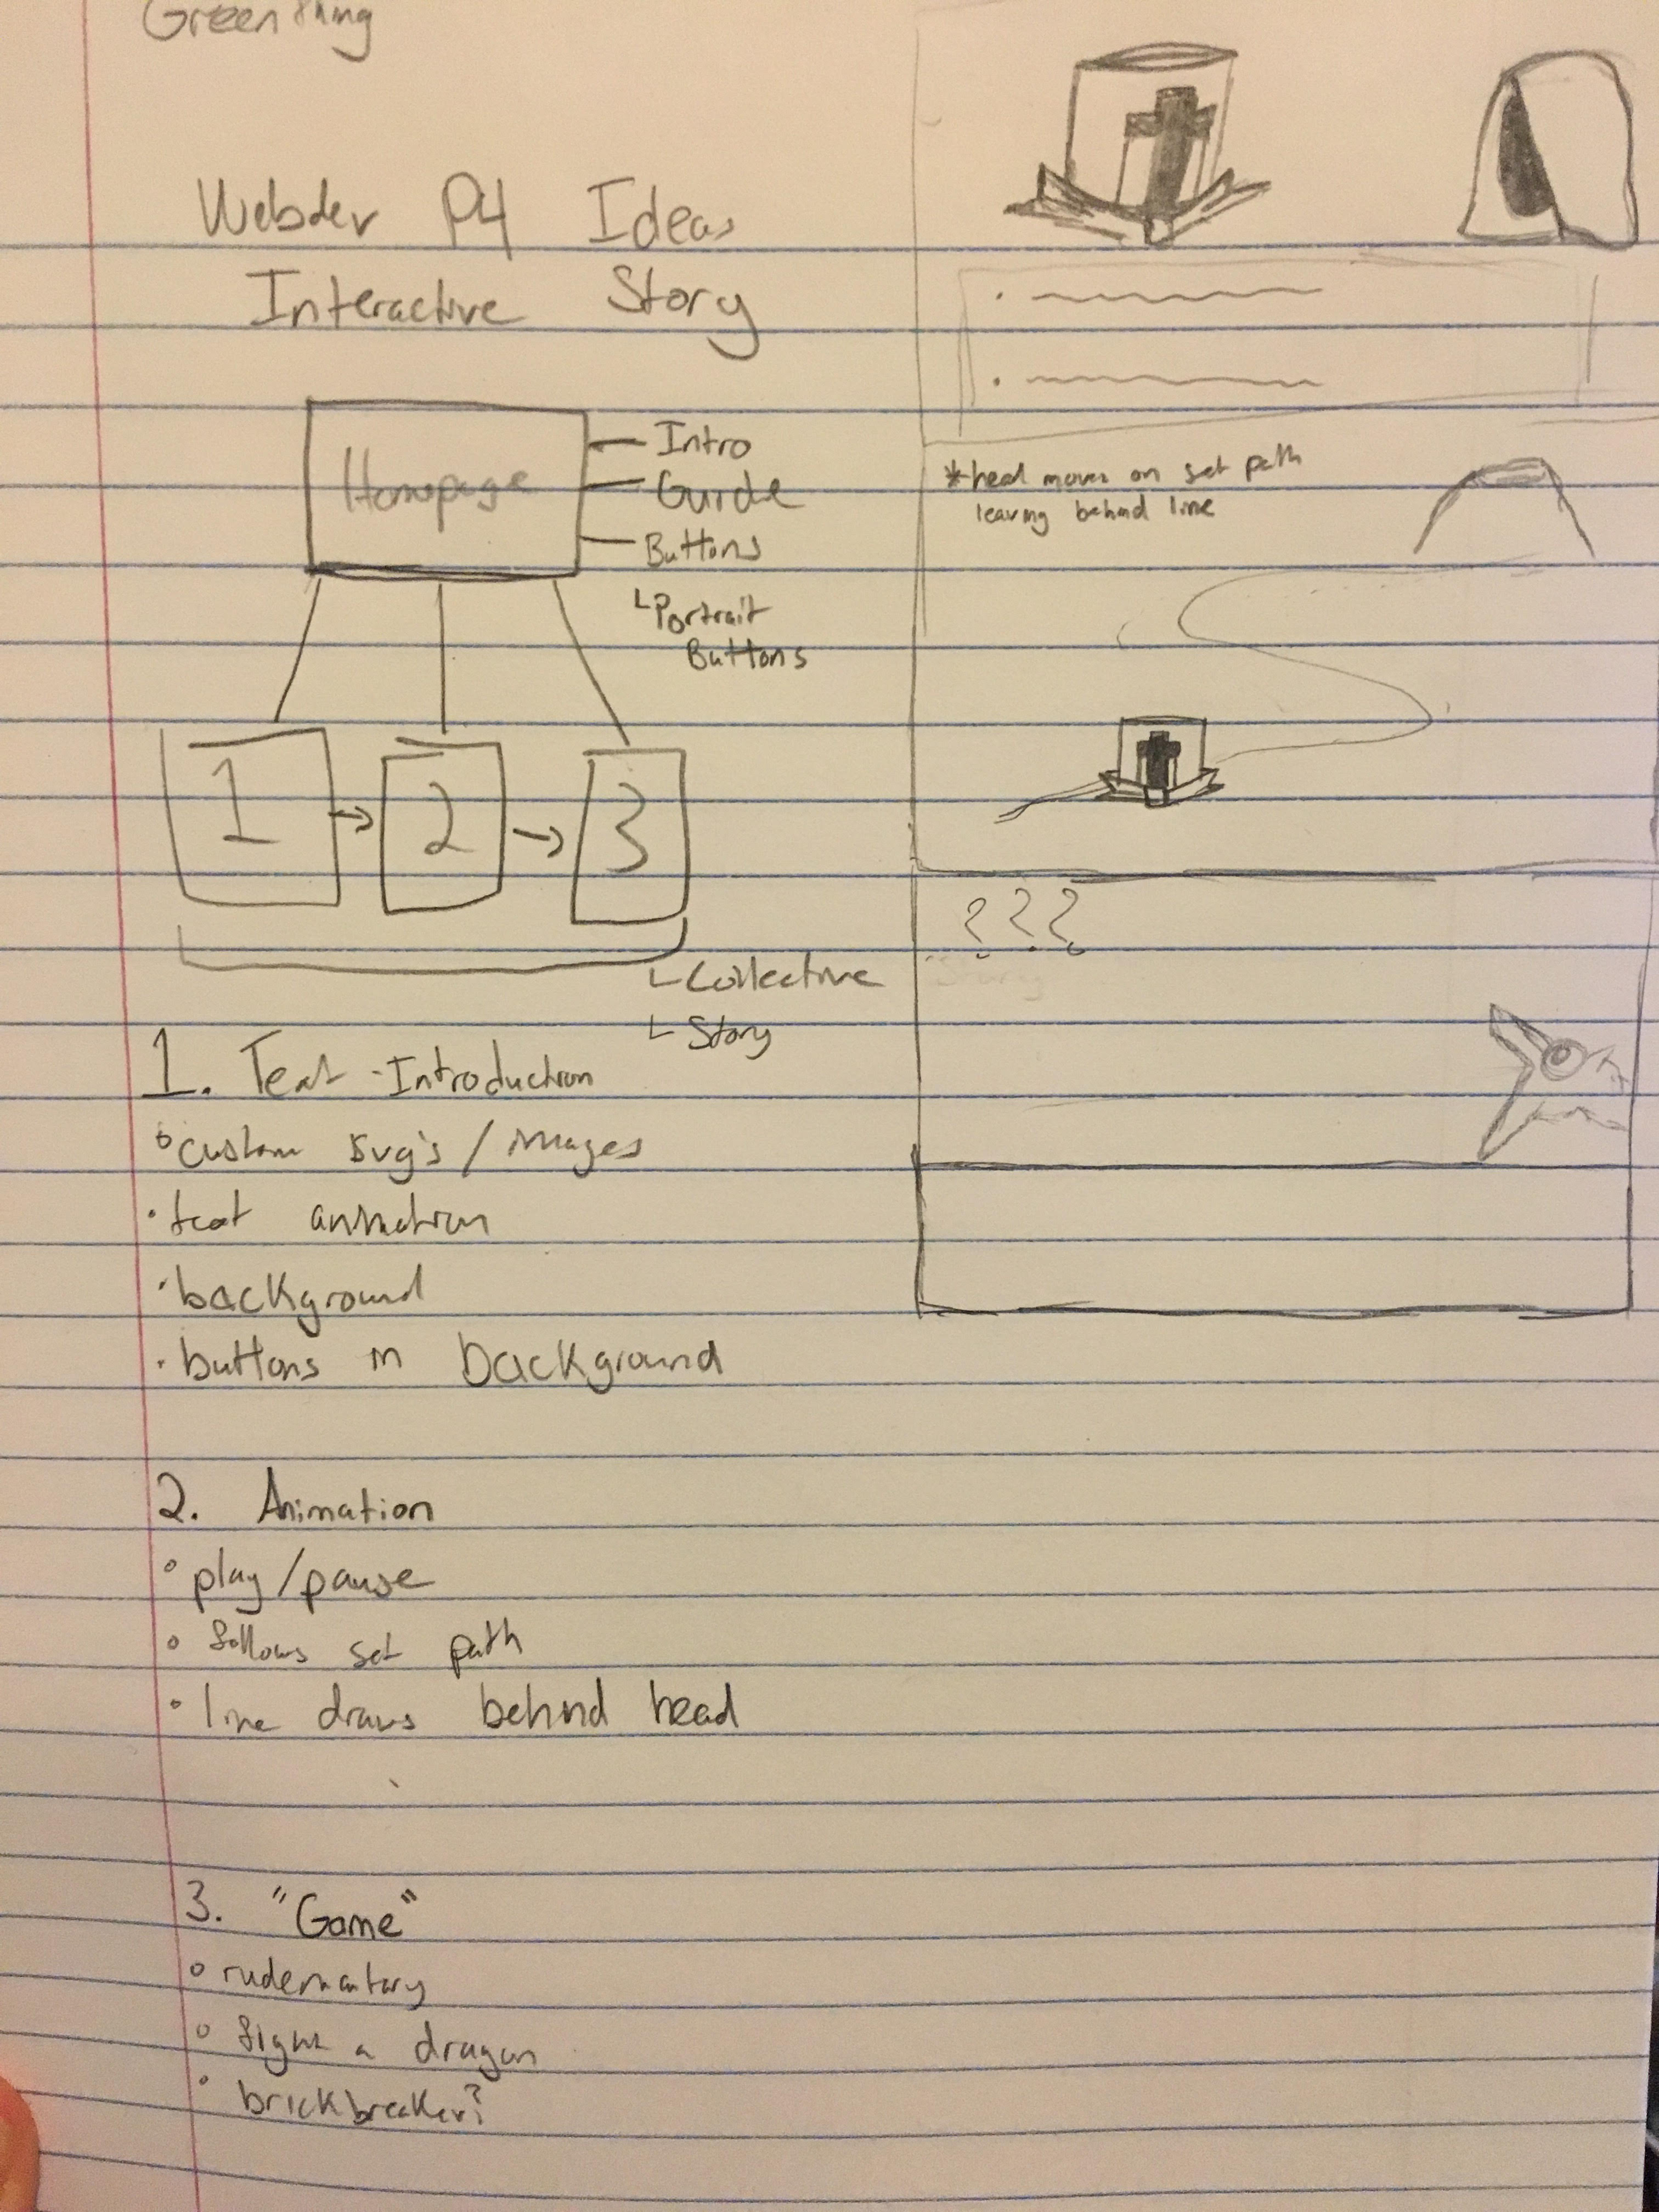 Green thing
Webdev P4 Ideas
Interactive Story
Homepage
Intro
Guide
Buttons
Portrait
Buttons
1 → 2 → 3
Collective
Story
1. Text - Introduction
custom svg's / images
text animation
background
buttons in background
2. Animation
play/pause
follows set path
line draws behind head
3. "Game"
rudementary
fight a dragon
brickbreaker?
*head moves on set path
leaving behind line
???